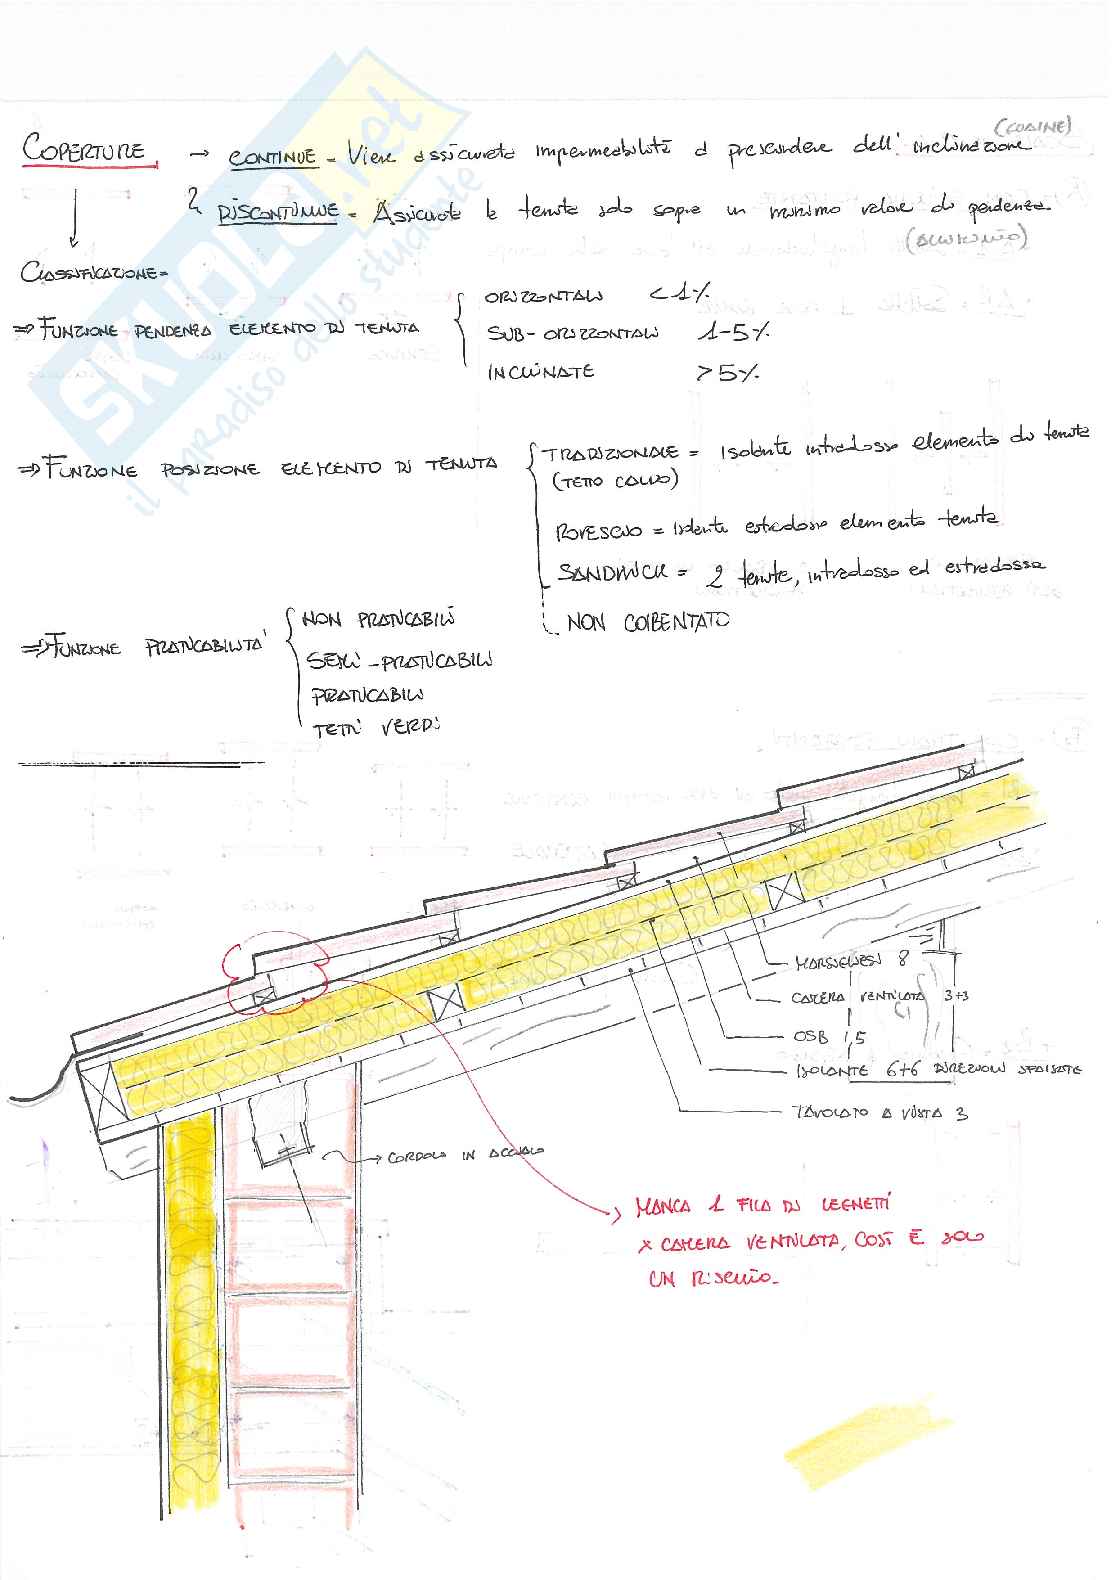 (GUAINE)
COPERTURE → CONTINUE = Viene assicurata impermeabilità a prescindere dell'inclinazione
DISCONTINUE = Assicurata la tenuta solo sopra un minimo valore di pendenza
CLASSIFICAZIONE =
⇒ FUNZIONE PENDENZA ELEMENTO DI TENUTA
ORIZZONTALI < 1%
SUB-ORIZZONTALI 1-5%
INCLINATE > 5%
⇒ FUNZIONE POSIZIONE ELEMENTO DI TENUTA
TRADIZIONALE = Isolante intradosso elemento di tenuta
(TETTO CALDO)
ROVESCIO = Isolante estradosso elemento tenuta
SANDWICH = 2 tenute, intradosso ed estradosso
NON COIBENTATO
⇒ FUNZIONE PRATICABILITÀ
NON PRATICABILI
SEMI-PRATICABILI
PRATICABILI
TETTI VERDI
MARSIGLIESI 8
CAMERA VENTILATA 3+3
OSB 1,5
ISOLANTE 6+6 DIREZIONI SFALSATE
TAVOLATO A VISTA 3
→ CORDOLO IN ACCIAIO
MANCA 1 FILA DI LEGNETTI
x CAMERA VENTILATA, COSÌ È SOLO
UN RISCHIO.
SKUOLA.net
il paradiso dello studente